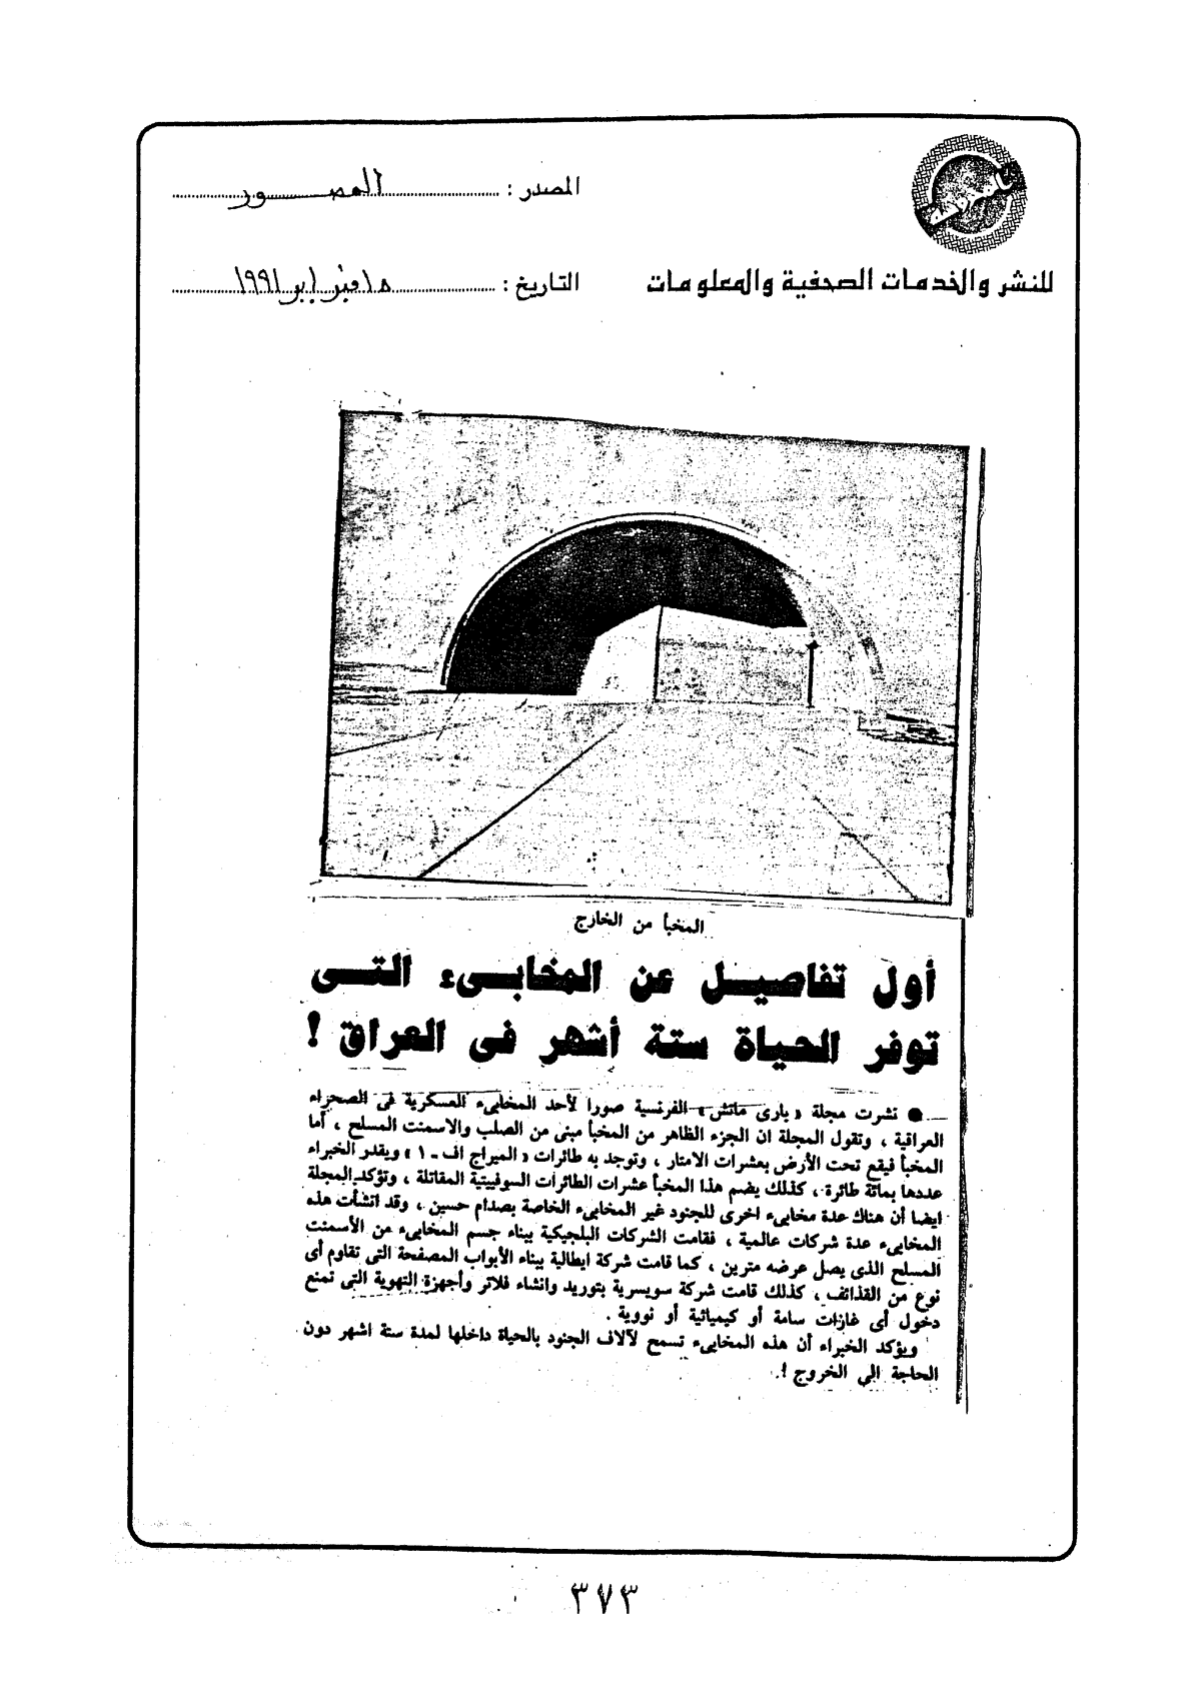 المصدر : المصور
للنشر والخدمات الصحفية والمعلومات
التاريخ : ١٥ فبراير ١٩٩١
المخبأ من الخارج
أول تفاصيل عن المخابىء التى
توفر الحياة ستة أشهر فى العراق !
● نشرت مجلة « بارى ماتش » الفرنسية صورا لأحد المخابىء العسكرية فى الصحراء
العراقية ، وتقول المجلة ان الجزء الظاهر من المخبأ مبنى من الصلب والاسمنت المسلح ، أما
المخبأ فيقع تحت الأرض بعشرات الامتار ، وتوجد به طائرات « الميراج اف ـ ١ » ويقدر الخبراء
عددها بمائة طائرة ، كذلك يضم هذا المخبأ عشرات الطائرات السوفييتية المقاتلة ، وتؤكد المجلة
ايضا أن هناك عدة مخابىء اخرى للجنود غير المخابىء الخاصة بصدام حسين ، وقد انشأت هذه
المخابىء عدة شركات عالمية ، فقامت الشركات البلجيكية ببناء جسم المخابىء من الأسمنت
المسلح الذى يصل عرضه مترين ، كما قامت شركة ايطالية ببناء الأبواب المصفحة التى تقاوم أى
نوع من القذائف ، كذلك قامت شركة سويسرية بتوريد وانشاء فلاتر وأجهزة التهوية التى تمنع
دخول أى غازات سامة أو كيميائية أو نووية .
ويؤكد الخبراء أن هذه المخابىء تسمح لآلاف الجنود بالحياة داخلها لمدة ستة اشهر دون
الحاجة الى الخروج !.
٣٧٣